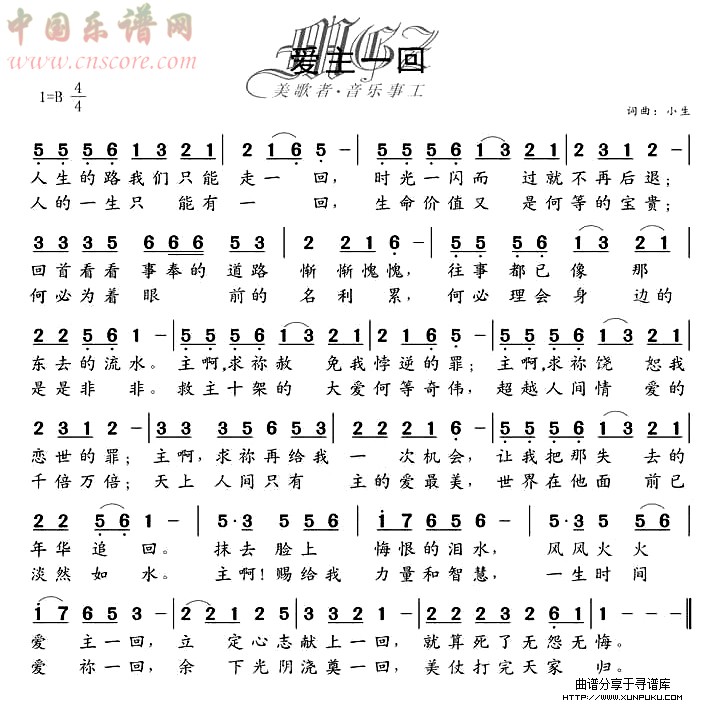 中国乐谱网
www.cnscore.com
爱主一回
美歌者·音乐事工
1=B 4/4
词曲：小生
5 5 5 6 1 3 2 1 | 2 1 6 5 - | 5 5 5 6 1 3 2 1 | 2 3 1 2 - |
人生的路我们只能 走一 回， 时光一闪而 过就不再后退；
人的一生只 能有 一 回， 生命价值又 是何等的宝贵；
3 3 3 5 6 6 6 5 3 | 2 2 2 1 6 - | 5 5 5 6 1 3 2 1 |
回首看看事奉的道路 惭惭愧愧， 往事都已像 那
何必为着眼 前的名利累， 何必理会身 边的
2 2 5 6 1 - | 5 5 5 6 1 3 2 1 | 2 3 1 2 - | 5 5 5 6 1 3 2 1 |
东去的流水。主啊,求祢赦 免我悖逆的罪；主啊,求祢饶 恕我
是是非 非。救主十架的 大爱何等奇伟，超越人间情 爱的
2 3 1 2 - | 3 3 3 5 6 5 3 | 2 2 2 1 6 - | 5 5 5 6 1 3 2 1 |
恋世的罪；主啊,求祢再给我 一次机会，让我把那失 去的
千倍万倍；天上 人间只有 主的爱最美，世界在他面 前已
2 2 5 6 1 - | 5·3 5·3 | 1 7 6 5 6 - | 5·3 5 5 |
年华 追 回。 抹去脸上 悔恨的泪水，风风火火
淡然 如 水。 主啊！赐给我 力量和智慧，一生时间
1 7 6 5 3 - | 2 2 1 2 5 3 2 1 2 - | 2 2 3 2 6 2 1 1 - |
爱 主一回，立 定心志献上一回，就算死了无怨无悔。
爱 祢一回，余 下光阴浇奠一回，美仗打完天家 归。
曲谱分享于寻谱库
HTTP://WWW.XUNPUKU.COM